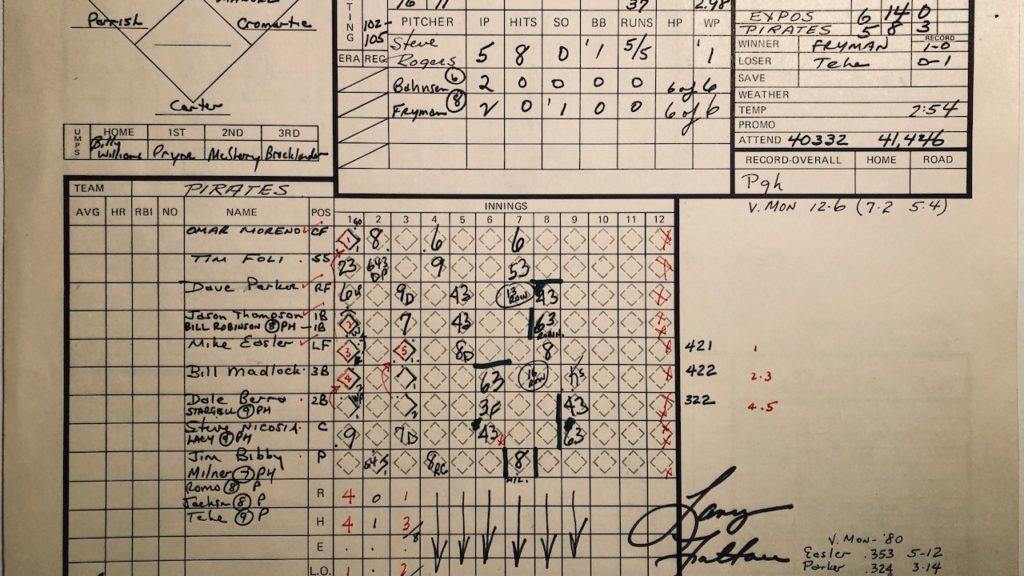 Parrish
Cromartie
Carter
UMPS HOME 1ST 2ND 3RD
Billy Williams Pryne McSherry Brocklander
TING 102- 105
16 11 37 2.98
ERA REC PITCHER IP HITS SO BB RUNS HP WP
Steve Rogers 5 8 0 1 5/5 1
Bahnsen (6) 2 0 0 0 0 6 of 6
Fryman (8) 2 0 1 0 0 6 of 6
EXPOS 6 14 0
PIRATES 5 8 3
RECORD
WINNER FRYMAN 1-0
LOSER Teke 0-1
SAVE
WEATHER
TEMP 2:54
PROMO
ATTEND 40332 41,426
RECORD-OVERALL HOME ROAD
Pgh
V. MON 12-6 (7-2 5-4)
TEAM PIRATES
INNINGS
AVG HR RBI NO NAME POS 1 2 3 4 5 6 7 8 9 10 11 12
OMAR MORENO CF 8 6 6
TIM FOLI SS 23 643 DP 9 53
Dave Parker RF 9D 43 13 ROW 43
Jason Thompson 1B 7 43 63
BILL ROBINSON (8) PH - 1B
Mike Easler LF 3 5 8D 8 421 1
Bill Madlock 3B 63 16 ROW Ks 422 2.3
Dale Berra 2B 43 322 4.5
STARGELL (9) PH
Steve Nicosia C 9 7D 43 63
LACY (9) PH
Jim Bibby P 8 8
Milner (7) PH
Romo (8) P R 4 0 1
Jackson (8) P
Teke (9) P H 4 1 3/8
E
L.O. 1 2
Lanny Frattare
V. MON-'80
Easler .353 5-12
Parker .324 3-14